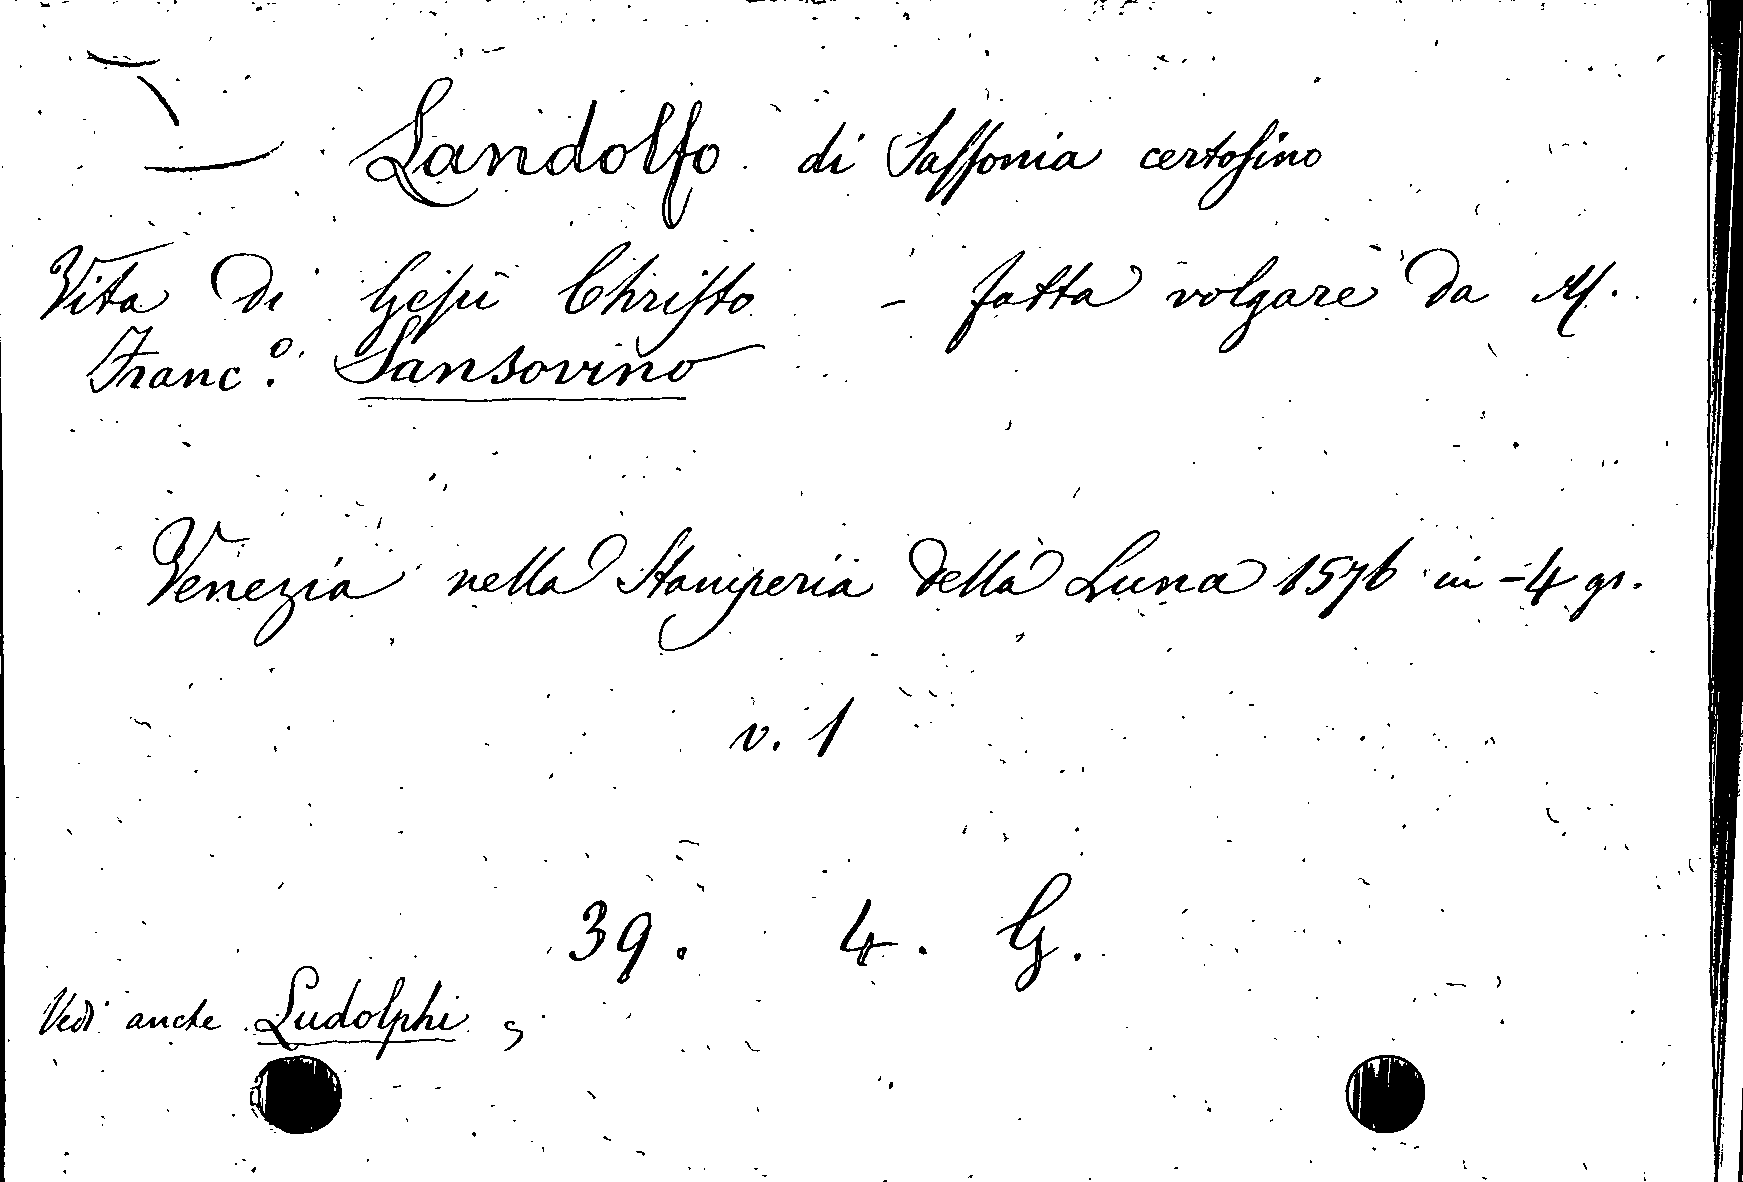 Landolfo di Saſſonia certoſino
Vita di Geſù Chriſto - fatta volgare da M.
Franc.º Sansovino
Venezia nella Stamperia della Luna 1576 in-4 gr.
v. 1
39. 4. G.
Vedi anche Ludolphi